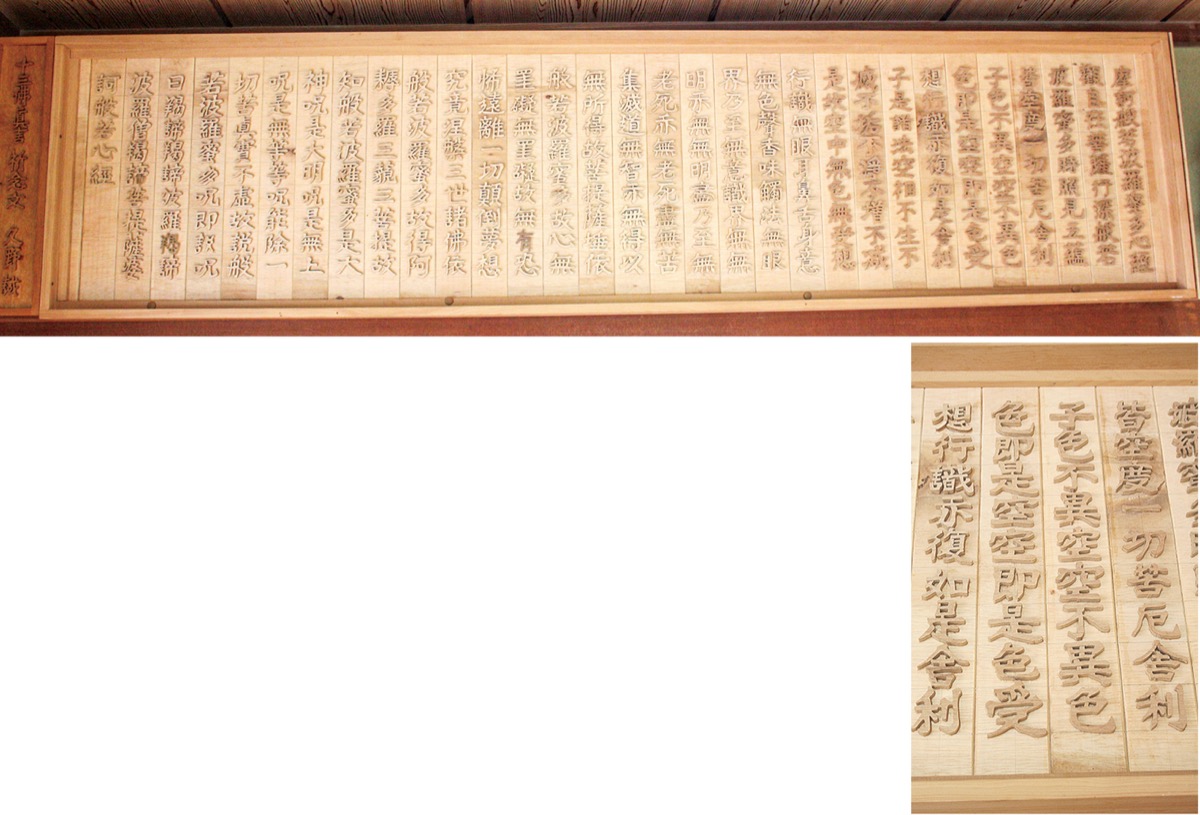 摩訶般若波羅蜜多心經
觀自在菩薩行深般若
波羅蜜多時照見五蘊
皆空度一切苦厄舍利
子色不異空空不異色
色即是空空即是色受
想行識亦復如是舍利
子是諸法空相不生不
滅不垢不淨不增不減
是故空中無色無受想
行識無眼耳鼻舌身意
無色聲香味觸法無眼
界乃至無意識界無無
明亦無無明盡乃至無
老死亦無老死盡無苦
集滅道無智亦無得以
無所得故菩提薩埵依
般若波羅蜜多故心無
罣礙無罣礙故無有恐
怖遠離一切顛倒夢想
究竟涅槃三世諸佛依
般若波羅蜜多故得阿
耨多羅三藐三菩提故
知般若波羅蜜多是大
神呪是大明呪是無上
呪是無等等呪能除一
切苦眞實不虛故說般
若波羅蜜多呪即說呪
曰羯諦羯諦波羅羯諦
波羅僧羯諦菩提薩婆
訶般若心經
十三佛眞言
波羅蜜
皆空度一切苦厄舍利
子色不異空空不異色
色即是空空即是色受
想行識亦復如是舍利